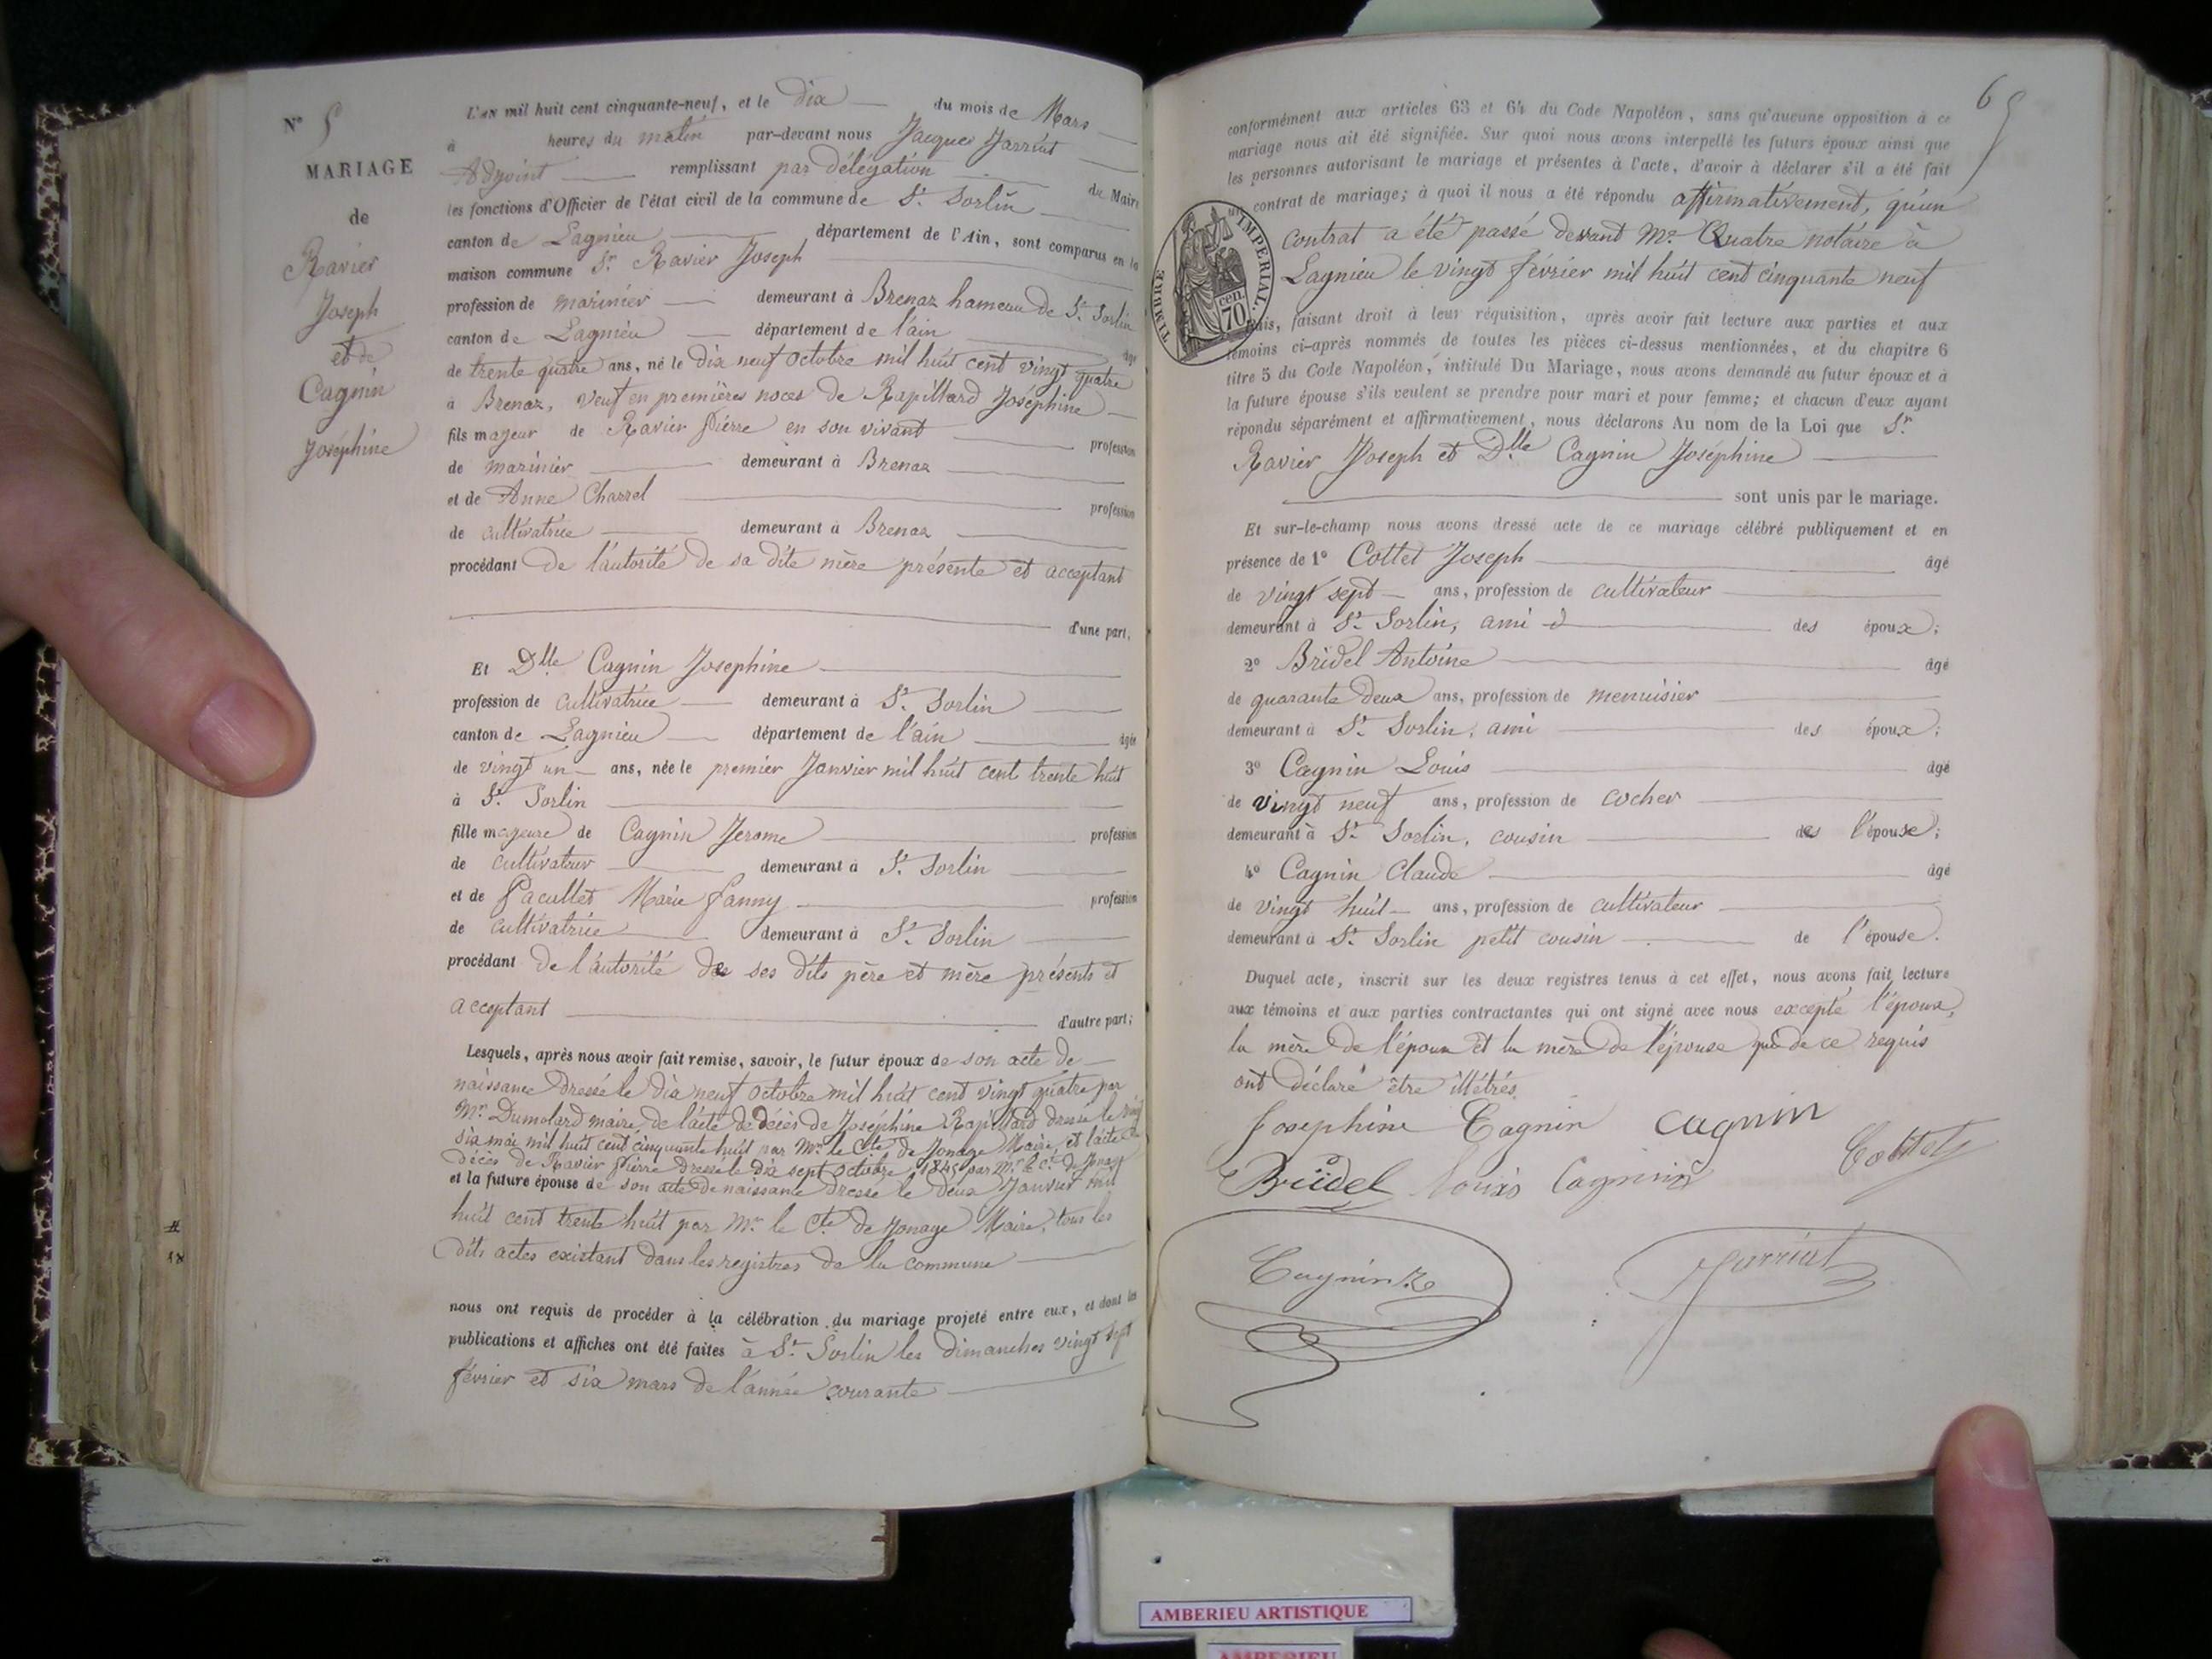 N° 5
MARIAGE
de
Ravier
Joseph
et de
Cagnin
Joséphine
L'AN mil huit cent cinquante-neuf, et le dix du mois de Mars
à heures du matin par-devant nous Jacques Jarriat
Adjoint remplissant par délégation du Maire
les fonctions d'Officier de l'état civil de la commune de St. Sorlin
canton de Lagnieu département de l'Ain, sont comparus en la
maison commune Sr. Ravier Joseph
profession de marinier demeurant à Brenaz hameau de St. Sorlin
canton de Lagnieu département de l'ain âgé
de trente quatre ans, né le dix neuf octobre mil huit cent vingt quatre
à Brenaz, veuf en premières noces de Rapillard Joséphine
fils majeur de Ravier pierre en son vivant profession
de marinier demeurant à Brenaz
et de Anne Charrel profession
de cultivatrice demeurant à Brenaz
procédant de l'autorité de sa dite mère présente et acceptant
d'une part,
Et Dlle Cagnin Josephine
profession de cultivatrice demeurant à St. Sorlin
canton de Lagnieu département de l'ain âgée
de vingt un ans, née le premier Janvier mil huit cent trente huit
à St. Sorlin
fille majeure de Cagnin Jerome profession
de cultivateur demeurant à St. Sorlin
et de Pacullet Marie fanny profession
de cultivatrice demeurant à St. Sorlin
procédant de l'autorité de ses dits père et mère présents et
acceptant d'autre part;
Lesquels, après nous avoir fait remise, savoir, le futur époux de son acte de
naissance dressé le dix neuf octobre mil huit cent vingt quatre par
Mr. Dumolard maire, de l'acte de décès de Joséphine Rapillard dressé le vingt
six mai mil huit cent cinquante huit par Mr. le Cte de Jonage Maire, et l'acte de
décès de Ravier pierre dressé le dix sept octobre 1845 par Mr. le Ct. de Jonage
et la future épouse de son acte de naissance dressé le deux Janvier mil
huit cent trente huit par Mr. le Cte. de Jonage Maire, tous les
dits actes existant dans les registres de la commune
nous ont requis de procéder à la célébration du mariage projeté entre eux, et dont les
publications et affiches ont été faites à St. Sorlin les dimanches vingt sept
février et six mars de l'année courante
65
conformément aux articles 63 et 64 du Code Napoléon, sans qu'aucune opposition à ce
mariage nous ait été signifiée. Sur quoi nous avons interpellé les futurs époux ainsi que
les personnes autorisant le mariage et présentes à l'acte, d'avoir à déclarer s'il a été fait
un contrat de mariage; à quoi il nous a été répondu affirmativement, qu'un
contrat a été passé devant Me. Quatre notaire à
Lagnieu le vingt février mil huit cent cinquante neuf
TIMBRE IMPERIAL.
cen.
70
Puis, faisant droit à leur réquisition, après avoir fait lecture aux parties et aux
témoins ci-après nommés de toutes les pièces ci-dessus mentionnées, et du chapitre 6
titre 5 du Code Napoléon, intitulé Du Mariage, nous avons demandé au futur époux et à
la future épouse s'ils veulent se prendre pour mari et pour femme; et chacun d'eux ayant
répondu séparément et affirmativement, nous déclarons Au nom de la Loi que Sr.
Ravier Joseph et Dlle Cagnin Joséphine
sont unis par le mariage.
Et sur-le-champ nous avons dressé acte de ce mariage célébré publiquement et en
présence de 1° Cottet Joseph âgé
de vingt sept ans, profession de cultivateur
demeurant à St. Sorlin, ami des époux;
2° Bridel Antoine âgé
de quarante deux ans, profession de menuisier
demeurant à St. Sorlin, ami des époux;
3° Cagnin Louis âgé
de vingt neuf ans, profession de cocher
demeurant à St. Sorlin, cousin de l'épouse;
4° Cagnin Claude âgé
de vingt huit ans, profession de cultivateur
demeurant à St. Sorlin petit cousin de l'épouse.
Duquel acte, inscrit sur les deux registres tenus à cet effet, nous avons fait lecture
aux témoins et aux parties contractantes qui ont signé avec nous excepté l'époux,
la mère de l'époux et la mère de l'épouse qui de ce requis
ont déclaré être illétrés.
Josephine Cagnin cagnin
Cottet
Bridel Louis Cagnin
Cagnin
Jarriat
AMBERIEU ARTISTIQUE
AMBERIEU